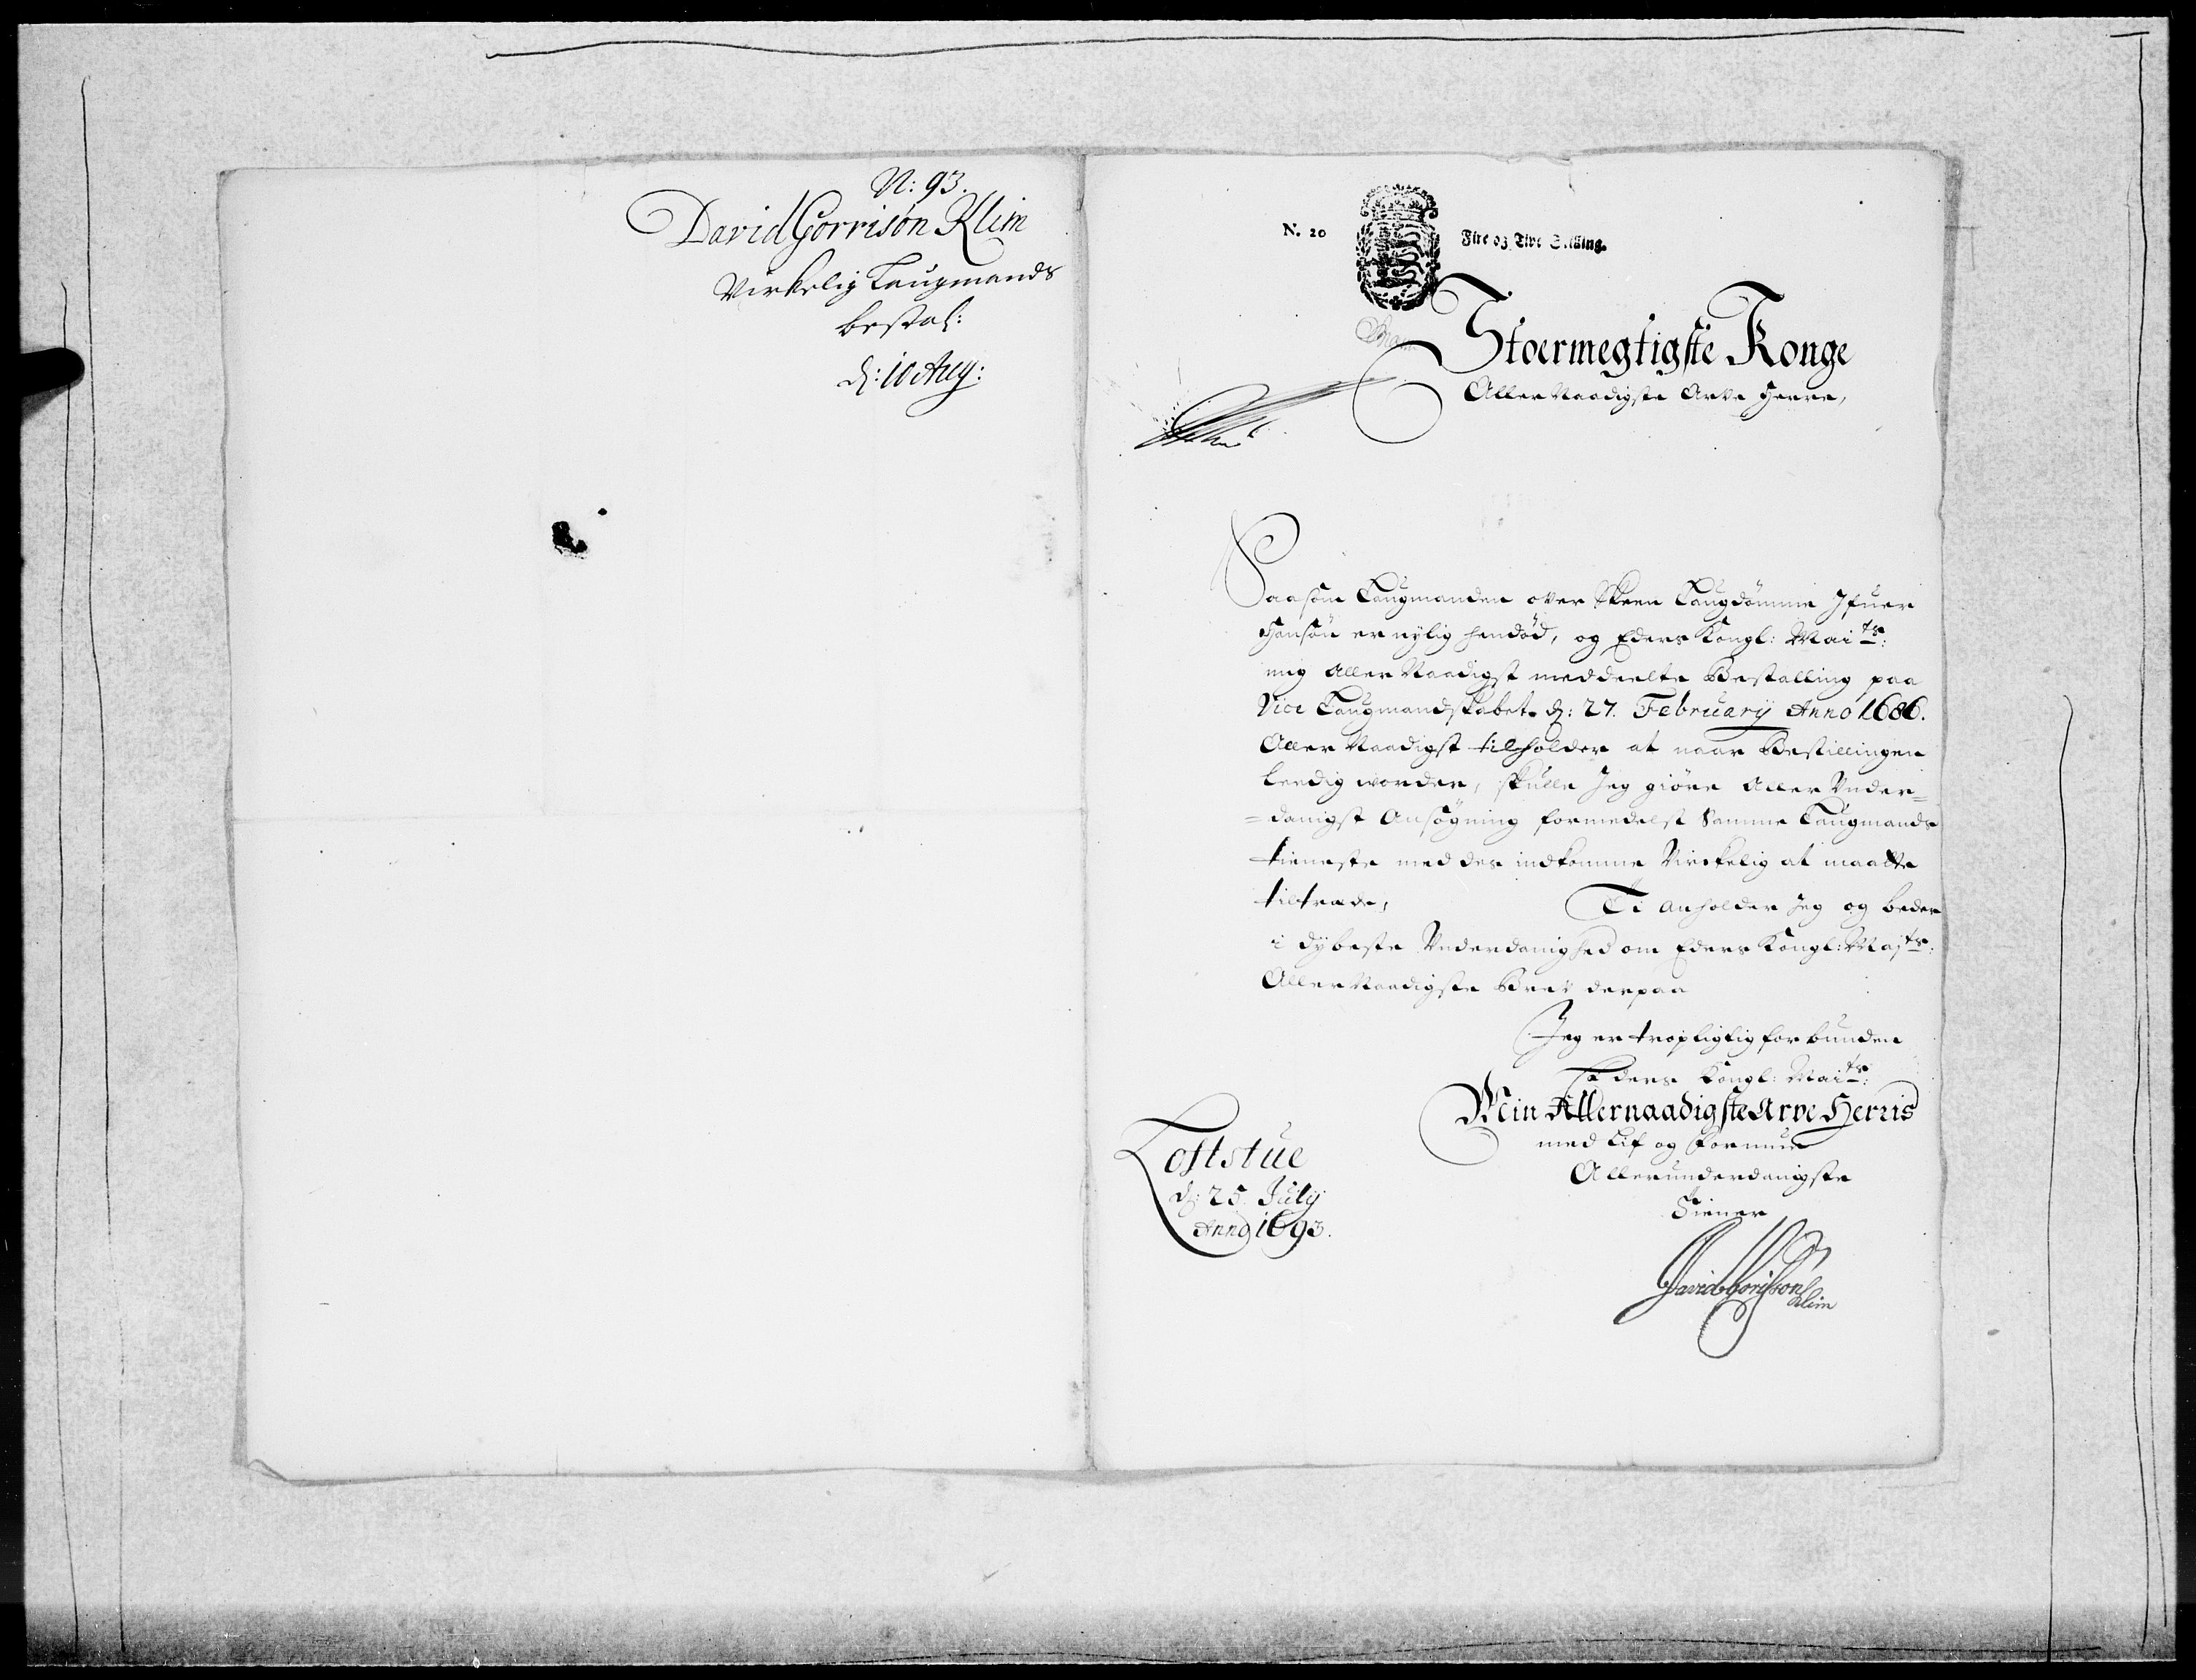 N: 93.
David Gorrisøn Klim
Virkelig Laugmands
bestal:
d: 10 Aug:
N. 20
Fire og Tive Skilling.
Stoermegtigste Konge
Aller Naadigste Arve Herre,
Saasom Laugmanden over Skeen Laugdömme Ifuer
Hansön er nylig hendöd, og Eders Kongl: Maits:
mig Aller Naadigst meddeelte Bestalling paa
Vice Laugmandskabet d: 27. February Anno 1686.
Aller Naadigst tilholder at naar Bestillingen
leedig vorder, skulle Jeg giöre Aller Under=
=danigst Ansögning formedelst Samme Laugmands
tieneste med des indkomme Virkelig at maatte
tiltræde, Ti anholder Jeg og beder
i dybeste Underdanighed om Eders Kongl: Majts:
Aller Naadigste Brev derpaa
Jeg er tropligtig forbunden
Eders Kongl: Maits:
Min Allernaadigste Arve Herris
med Lif og Formue
Allerunderdanigste
Tiener
Loftstue
d: 25. July
Anno 1693.
David Gorisson
Klim